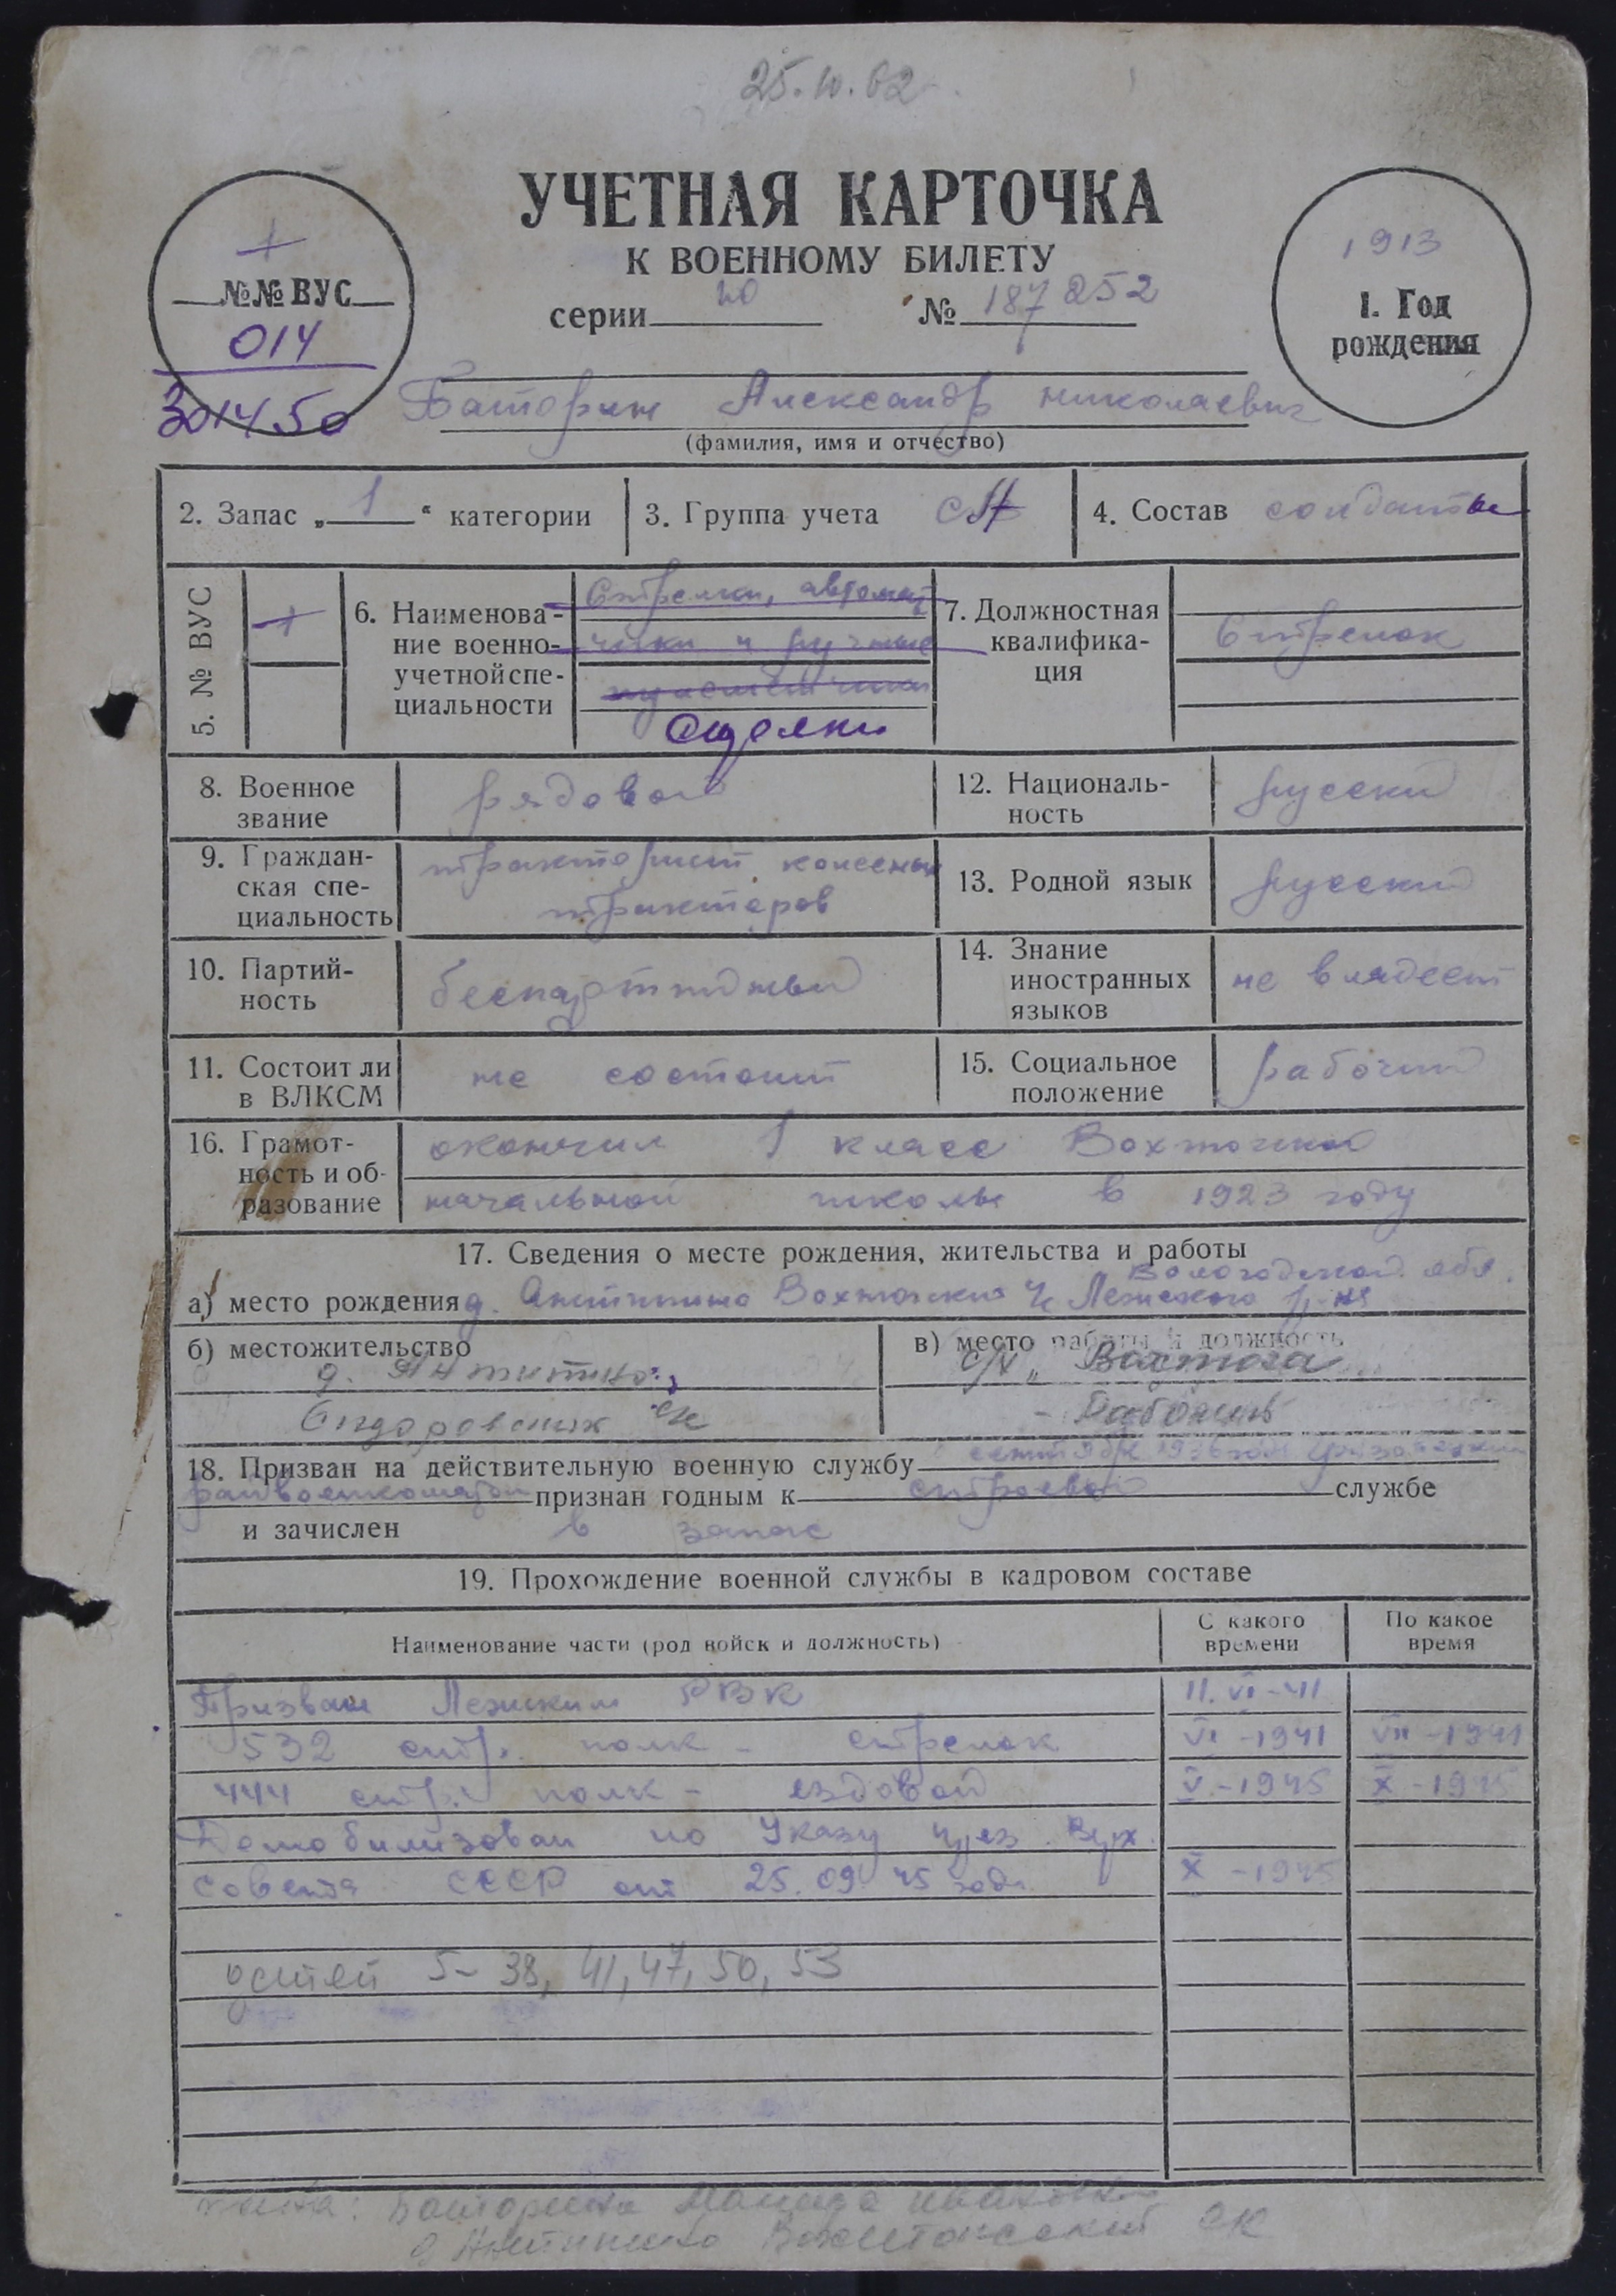 25.10.62
УЧЕТНАЯ КАРТОЧКА
К ВОЕННОМУ БИЛЕТУ
серии № 187252
№№ ВУС
014
301450
1913
1. Год
рождения
Баторин Александр Николаевич
(фамилия, имя и отчество)
2. Запас „ 1 “ категории
3. Группа учета
4. Состав солдаты
5. № ВУС
6. Наименова-
ние военно-
учетной спе-
циальности
Стрелки, автомат
чики и ручные
пулеметчики
7. Должностная
квалифика-
ция
Стрелок
8. Военное
звание
рядовой
12. Националь-
ность
русский
9. Граждан-
ская спе-
циальность
тракторист колесных
тракторов
13. Родной язык
русский
10. Партий-
ность
беспартийный
14. Знание
иностранных
языков
не владеет
11. Состоит ли
в ВЛКСМ
не состоит
15. Социальное
положение
рабочий
16. Грамот-
ность и об-
разование
окончил 1 класс Вохтожской
начальной школы в 1923 году
17. Сведения о месте рождения, жительства и работы
Вологодской обл.
а) место рождения д. Антипино Вохтожский с/с Лежского р-на
б) местожительство
д. Антипино
Сидоровский с/с
в) место работы и должность
с/х „Вохтога“
- Рабочий
18. Призван на действительную военную службу сентябре 1936 года Грязовецким
райвоенкоматом признан годным к строевой службе
и зачислен в запас
19. Прохождение военной службы в кадровом составе
Наименование части (род войск и должность)
С какого
времени
По какое
время
Призван Лежским РВК 11.VI-41
532 стр. полк - стрелок VI-1941 VII-1941
444 стр. полк - ездовой V-1945 X-1945
Демобилизован по Указу През. Верх.
Совета СССР от 25.09.45 года X-1945
детей 5 - 38, 41, 47, 50, 53
жена: Баторина Ивановна
д Антипино Вохтожский с/с